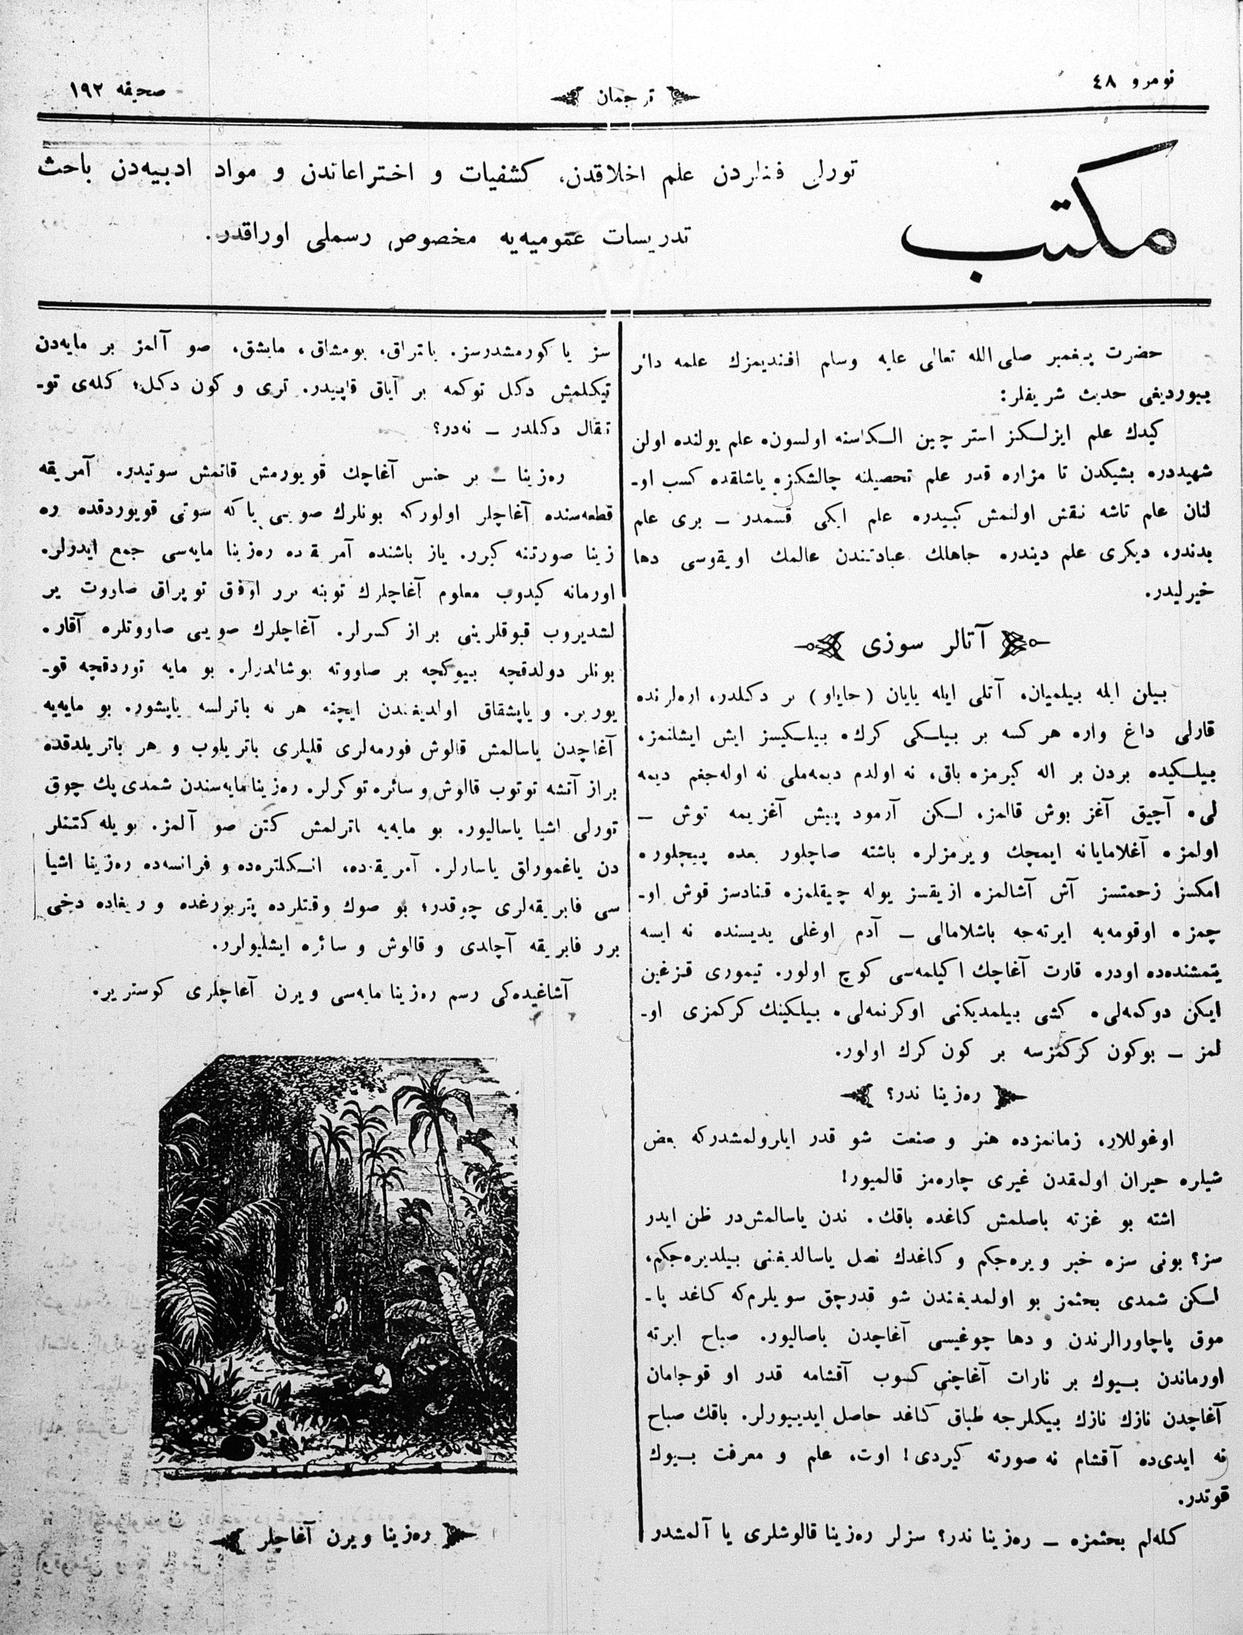 نومرو ٤٨
ترجمان
صحیفه ١٩٢
مكتب
تورلی فنلردن علم اخلاقدن، كشفیات و اختراعاتدن و مواد ادبیه‌دن باحث
تدریسات عمومیه‌یه مخصوص رسملی اوراقدر.
حضرت پیغمبر صلی الله تعالی علیه وسلم افندیمزك علمه دائر
بیوردیغی حدیث شریفلر:
كیدك علم ایزلكز استر چین الكاسنه اولسون، علم یولنده اولن
شهیددره بشیكدن تا مزاره قدر علم تحصیلنه چالشكز، یاشلقده كسب او-
لنان علم تاشه نقش اولنمش كبیدره علم ایكی قسمدر — بری علم
بدندر، دیكری علم دیندره جاهلك عبادتندن عالمك اویقوسی دها
خیرلیدر.
آتالر سوزی
بیلن ایله بیلمیان، آتلی ایله یایان (جایاو) بر دكلدر، اره‌لرنده
قارلی داغ واره هر كسه بر بیلكی كرك، بیلكیسز ایش ایشلنمز،
بیلكیده بردن بر اله كیرمزه باق، نه اولدم دیمه‌ملی نه اوله‌جغم دیمه
لی، آچیق آغز بوش قالمز، لكن آرمود پیش آغزیمه توش —
اولمزه آغلامایانه ایمچك ویرمزلره باشته صاچلور بعده پیچلوره
امكسز زحمتسز آش آشالمزه ازیقسز یوله چیقلمزه قنادسز قوش او-
چمزه اوقومه‌یه ایرته‌جه باشلامالی — آدم اوغلی یدیسنده نه ایسه
یتمشنده‌ده اودره قارت آغاچك اكیلمه‌سی كوچ اولور. تیموری قزغین
ایكن دوكمه‌لی، كشی بیلمدیكنی اوكرنمه‌لی، بیلكینك كركمزی او-
لمز — بوكون كركمزسه بر كون كرك اولور.
ره‌زینا ندر؟
اوغوللار، زمانمزده هنر و صنعت شو قدر ایلرولمشدركه بعض
شیلره حیران اولمقدن غیری چاره‌مز قالمیور!
اشته بو غزته باصلمش كاغده باقك. ندن یاسالمش‌در ظن ایدر
سز؟ بونی سزه خبر ویره‌جكم و كاغدك نصل یاسالدیغنی بیلدیره‌جكم،
لكن شمدی بحثمز بو اولمدیغندن شو قدرچق سویلرم‌كه كاغد پا-
موق پاچاورالرندن و دها چوغیسی آغاچدن یاصالیور. صباح ایرته
اورماندن بیوك بر نارات آغاچنی كسوب آقشامه قدر او قوجامان
آغاچدن نازك نازك بیكلرجه طباق كاغد حاصل ایدییورلر. باقك صباح
نه ایدی‌ده آقشام نه صورته كیردی! اوت، علم و معرفت بیوك
قوتدر.
كله‌لم بحثمزه — ره‌زینا ندر؟ سزلر ره‌زینا قالوشلری یا آلمشدر
سز یا كورمشدرسز. باتراق، یومشاق، مایشق، صو آلمز بر مایه‌دن
تیكلمش دكل توكمه بر آیاق قابیدر. تری و كون دكل؛ كله‌ی تو-
تقال دكلدر — نه‌در؟
ره‌زینا — بر جنس آغاچك قویورمش قاتمش سوتیدر. آمریقه
قطعه‌سنده آغاچلر اولوركه بونلرك صویی یا كه سوتی قویوردقده ره
زینا صورتنه كیرر. یاز باشنده آمریقه‌ده ره‌زینا مایه‌سی جمع ایدرلر.
اورمانه كیدوب معلوم آغاچلرك توبنه برر اوفق توپراق صاروت یر
لشدیروب قبوقلرینی بر از كسرلر. آغاچلرك صویی صاووتلره آقار.
بونلر دولدقچه بیوكچه بر صاووته بوشالدرلر. بو مایه توردقچه قو-
یوریر. و یاپشقاق اولدیغندن ایچنه هر نه باترلسه یاپشور. بو مایه‌یه
آغاچدن یاسالمش قالوش فورمه‌لری قلپلری باتریلوب و هر باتریلدقده
براز آتشه توتوب قالوش و سائره توكرلر. ره‌زینا مایه‌سندن شمدی پك چوق
تورلی اشیا یاسالیور. بو مایه‌یه باترلمش كتن صو آلمز. بویله كتنلر
دن یاغموراق یاسارلر. آمریقه‌ده، انكلتره‌ده و فرانسه‌ده ره‌زینا اشیا
سی فابریقه‌لری چوقدر؛ بو صوك وقتلرده پتربورغده و ریغاده دخی
برر فابریقه آچلدی و قالوش و سائره ایشلیولرر.
آشاغیده‌كی رسم ره‌زینا مایه‌سی ویرن آغاچلری كوستریر.
ره‌زینا ویرن آغاچلر